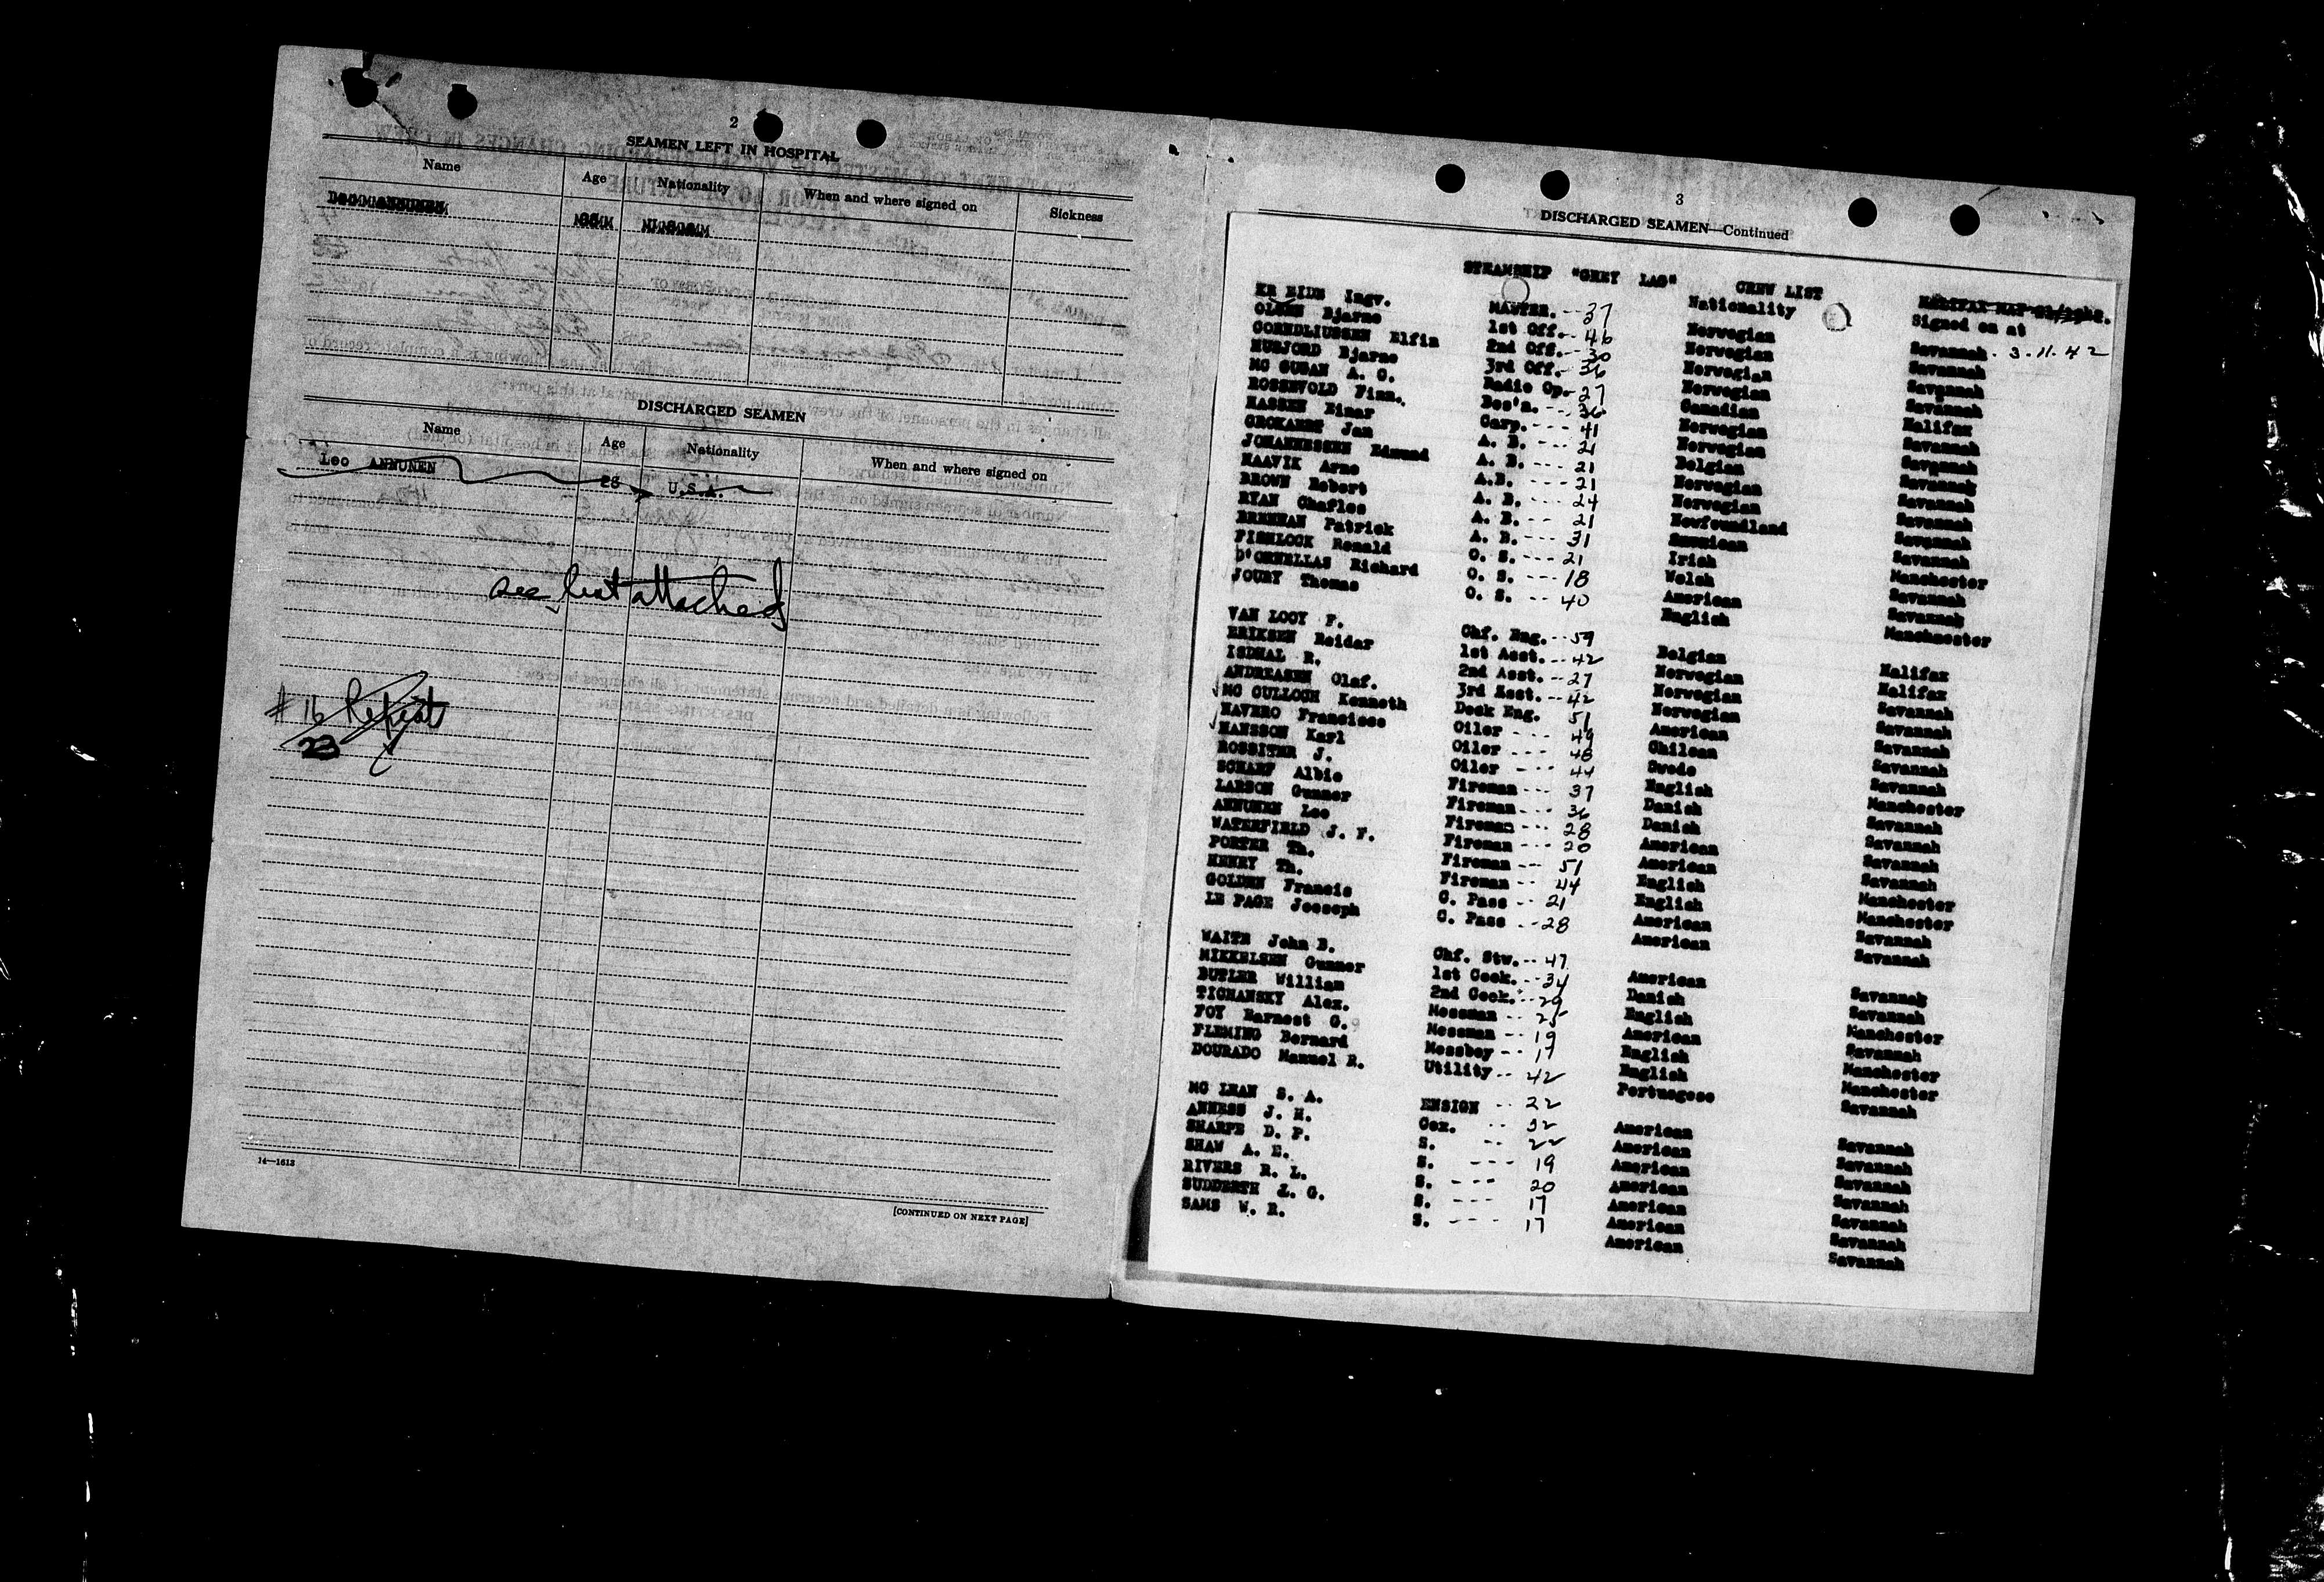 2
SEAMEN LEFT IN HOSPITAL
Name Age Nationality When and where signed on Sickness
DISCHARGED SEAMEN
Name Age Nationality When and where signed on
Leo ANNUNEN 28 U.S.A.
see list attached
# 16 Repeat
23
14—1613
[CONTINUED ON NEXT PAGE]
3
DISCHARGED SEAMEN—Continued
STEAMSHIP "GREY LAG" CREW LIST HALIFAX MAY 21/1942.
Nationality Signed on at
KR EIDE Ingv. MASTER. -- 37 Norwegian Savannah. 3.11.42
OLSEN Bjarne 1st Off. -- 46 Norwegian Savannah
CORNELIUSSEN Elfin 2nd Off. -- 30 Norwegian Savannah
MURJORD Bjarne 3rd Off. - 36 Norwegian Savannah
MC GUBAN A. C. Radio Op. - 27 Canadian Halifax
ROSSEVOLD Finn. Bos'n. --- 36 Norwegian Savannah
HASSEN Einar Carp. --- 41 Norwegian Savannah
CROKAERT Jan A. B. --- 21 Belgian Savannah
JOHANNESSEN Edmund A. B. --- 21 Norwegian Savannah
HAAVIK Arne A.B. --- 21 Norwegian Savannah
BROWN Robert A. B. --- 24 Newfoundland Savannah
RYAN Chafles A. B. -- 21 American Savannah
BRENNAN Patrick A. B. --- 31 Irish Manchester
FISHLOCK Ronald O. S. --- 21 Welsh Savannah
D'ORNELLAS Richard O. S. --- 18 American Savannah
JOURY Thomas O. S. --- 40 English Manchnester
VAN LOOY F. Chf. Eng. -- 59 Belgian Halifax
ERIKSEN Reidar 1st Asst. -- 42 Norwegian Halifax
ISDHAL R. 2nd Asst. -- 27 Norwegian Savannah
ANDREASEN Olaf. 3rd Asst. -- 42 Norwegian Savannah
MC CULLOCH Kenneth Deck Eng. 51 American Savannah
NAVERO Francisco Oiler --- 49 Chilean Savannah
HANSSON Karl Oiler --- 48 Swede Savannah
ROSSITER J. Oiler --- 44 English Manchester
SCHARF Albie Fireman --- 37 Danish Savannah
LARSON Gunner Fireman --- 36 Danish Savannah
ANNUNEN Leo Fireman --- 28 American Savannah
WATERFIELD J. F. Fireman --- 20 American Savannah
PORTER Th. Fireman -- 51 English Manchester
HENRY Th. Fireman -- 44 English Manchester
GOLDEN Francis C. Pass -- 21 American Savannah
LE PAGE Joeseph C. Pass -- 28 American Savannah
WAITE John B. Chf. Stw. -- 47 American Savannah
MIKKELSEN Gunner 1st Cook. -- 34 Danish Savannah
BUTLER William 2nd Cook. -- 29 English Manchester
TICHANSKY Alex. Messman -- 25 American Savannah
FOY Earnest G. Messman -- 19 English Manchester
FLEMING Bernard Messboy -- 17 English Manchester
DOURADO Manuel R. Utility -- 42 Portuegese Savannah
MC LEAN S. A. ENSIGN -- 22 American Savannah
ANNESS J. H. Cox. -- 32 American Savannah
SHARPE D. P. S. -- 22 American Savannah
SHAW A. E. S. --- 19 American Savannah
RIVERS R. L. S. --- 20 American Savannah
SUDDERTH L. G. S. --- 17 American Savannah
SAMS W. R. S. ---- 17 American Savannah